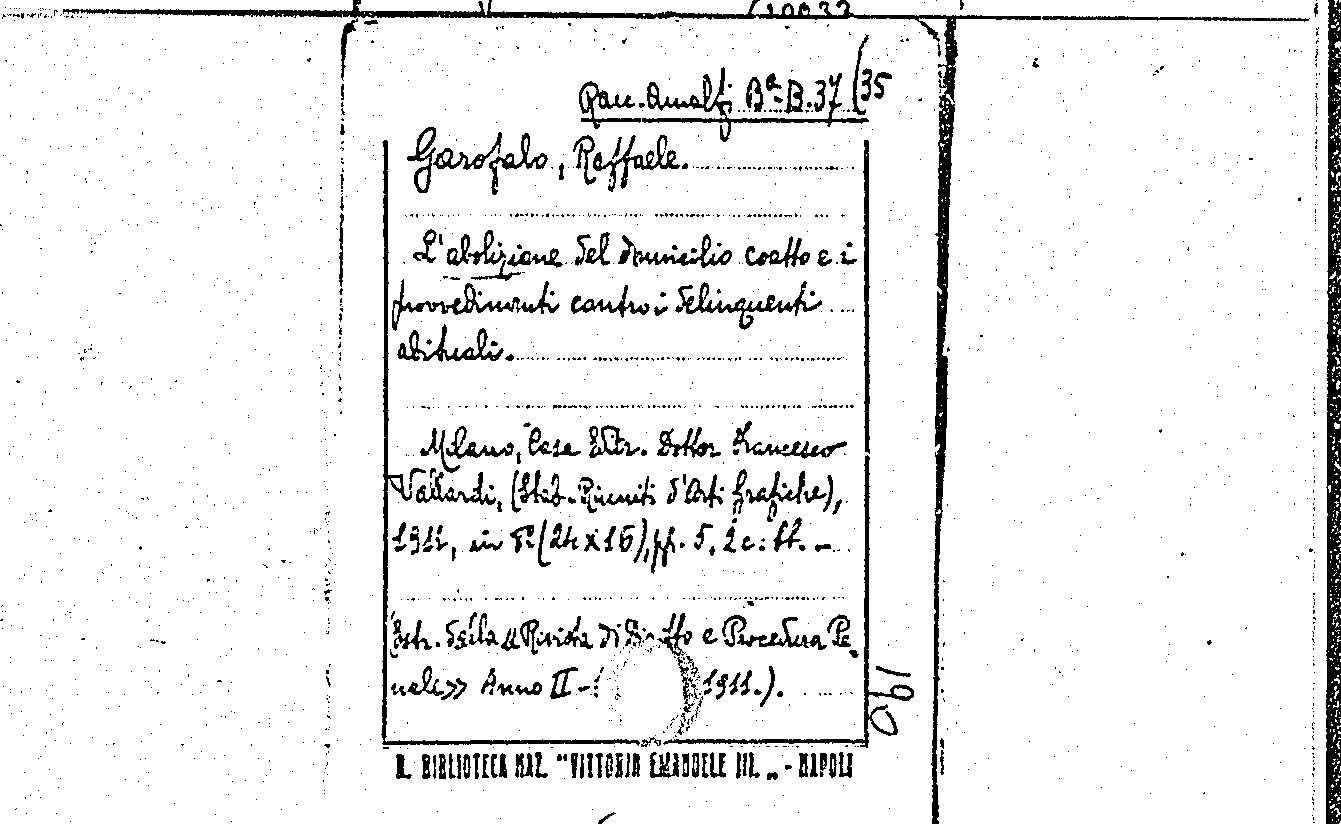 Racc. Amalfi Bª. B. 37 (35
Garofalo, Raffaele.
L'abolizione del domicilio coatto e i
provvedimenti contro i delinquenti
abituali.
Milano, Casa Editr. Dottor Francesco
Vallardi, (Stab. Riuniti d'Arti Grafiche),
1911, in 8º (24 x 16), pp. 5, 2 c: bb. -
(Estr. della « Rivista di Diritto e Procedura Pe
nale » Anno II - 1911.).
190
R. BIBLIOTECA NAZ. "VITTORIO EMANUELE III. „ - NAPOLI